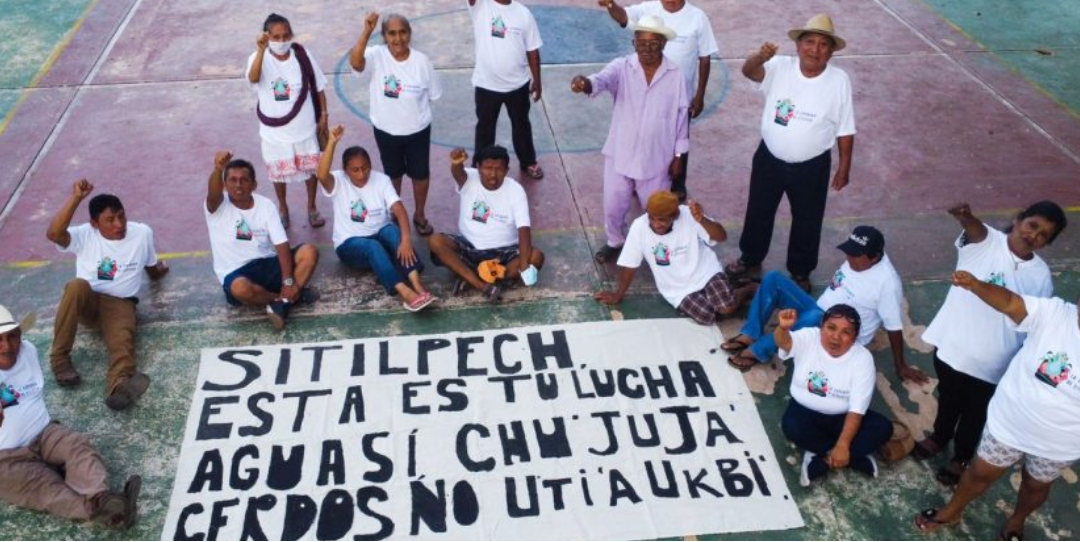 SITILPECH,
ESTA ES TU LUCHA
AGUA SÍ, CHU'JUJA'
CERDOS NO U'TI'AUKBI'.